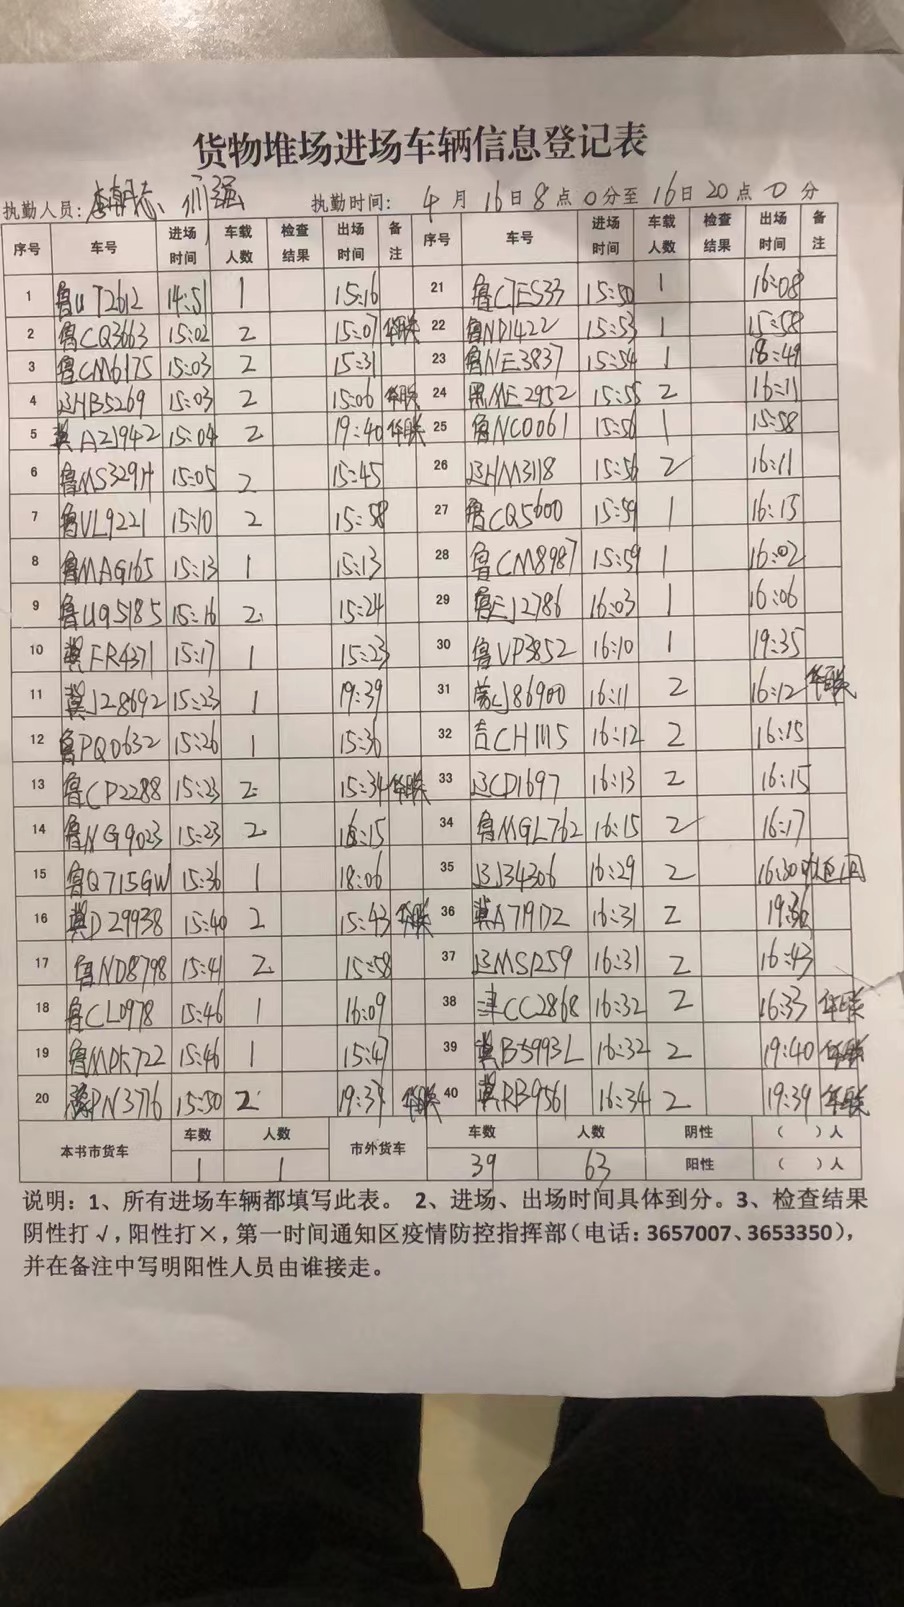 货物堆场进场车辆信息登记表
执勤人员: 执勤时间: 4月16日8点0分至16日20点0分
序号 车号 进场时间 车载人数 检查结果 出场时间 备注 序号 车号 进场时间 车载人数 检查结果 出场时间 备注
1 鲁UT2612 14:51 1 15:16 21 鲁CTE533 15:50 1 16:08
2 鲁CQ3663 15:02 2 15:07 华联 22 鲁ND1422 15:53 1 15:58
3 鲁CM6175 15:03 2 15:31 23 鲁NE3837 15:54 1 18:49
4 辽HB5269 15:03 2 15:06 华联 24 黑ME2952 15:55 2 16:11
5 冀A21942 15:04 2 19:40 华联 25 鲁NC0061 15:56 1 15:58
6 鲁MS329H 15:05 2 15:45 26 辽HM3118 15:56 2 16:11
7 鲁VL9221 15:10 2 15:58 27 鲁CQ5600 15:59 1 16:15
8 鲁MAG165 15:13 1 15:13 28 鲁CM8987 15:59 1 16:02
9 鲁UQ5185 15:16 2 15:24 29 鲁EJ2786 16:03 1 16:06
10 冀FR4371 15:17 1 15:23 30 鲁VP3852 16:10 1 19:35
11 冀J28692 15:23 1 19:39 31 蒙J86900 16:11 2 16:12 华联
12 鲁PQ0632 15:26 1 15:36 32 吉CH1115 16:12 2 16:15
13 鲁CP2288 15:23 2 15:34 华联 33 辽CD1697 16:13 2 16:15
14 鲁NG9023 15:23 2 16:15 34 鲁MGL762 16:15 2 16:17
15 鲁Q715GW 15:36 1 18:06 35 辽J34306 16:29 2 16:30
16 冀D29938 15:40 2 15:43 华联 36 冀A719D2 16:31 2 19:36
17 鲁ND8798 15:41 2 15:58 37 辽MS1259 16:31 2 16:43
18 鲁CL0978 15:46 1 16:09 38 津CC2868 16:32 2 16:33 华联
19 鲁MDK722 15:46 1 15:47 39 冀B5993L 16:32 2 19:40 华联
20 豫PN3776 15:50 2 19:39 华联 40 冀RB9561 16:34 2 19:39 华联
本书市货车 车数 人数 市外货车 车数 人数 阴性 ( )人
1 1 39 63 阳性 ( )人
说明：1、所有进场车辆都填写此表。 2、进场、出场时间具体到分。3、检查结果
阴性打√，阳性打×，第一时间通知区疫情防控指挥部（电话：3657007、3653350），
并在备注中写明阳性人员由谁接走。